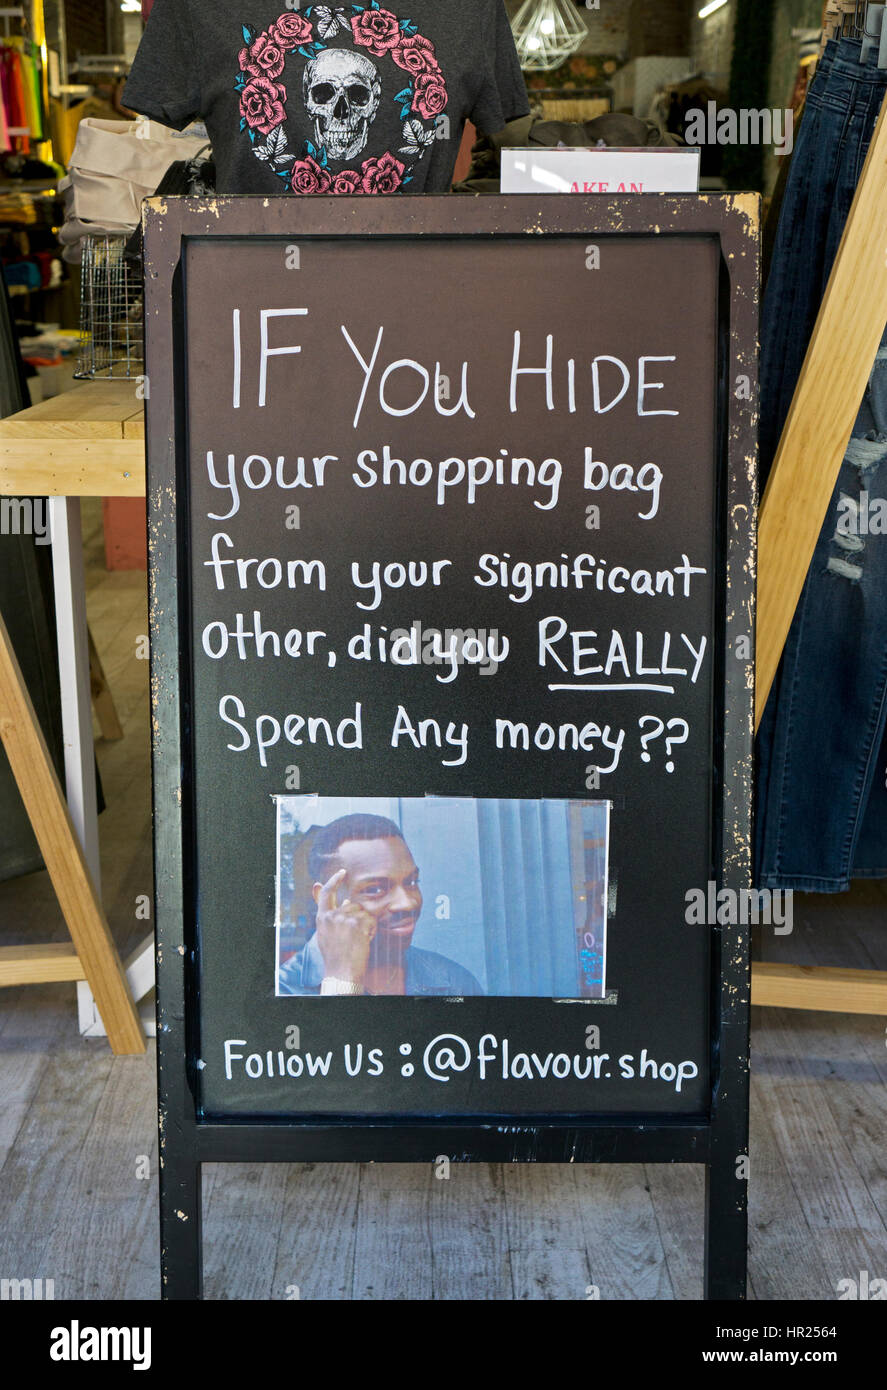 AKE AN
IF YOU HIDE
your shopping bag
from your significant
other, did you REALLY
Spend Any money??
Follow Us : @flavour.shop
alamy
Image ID: HR2564
www.alamy.com